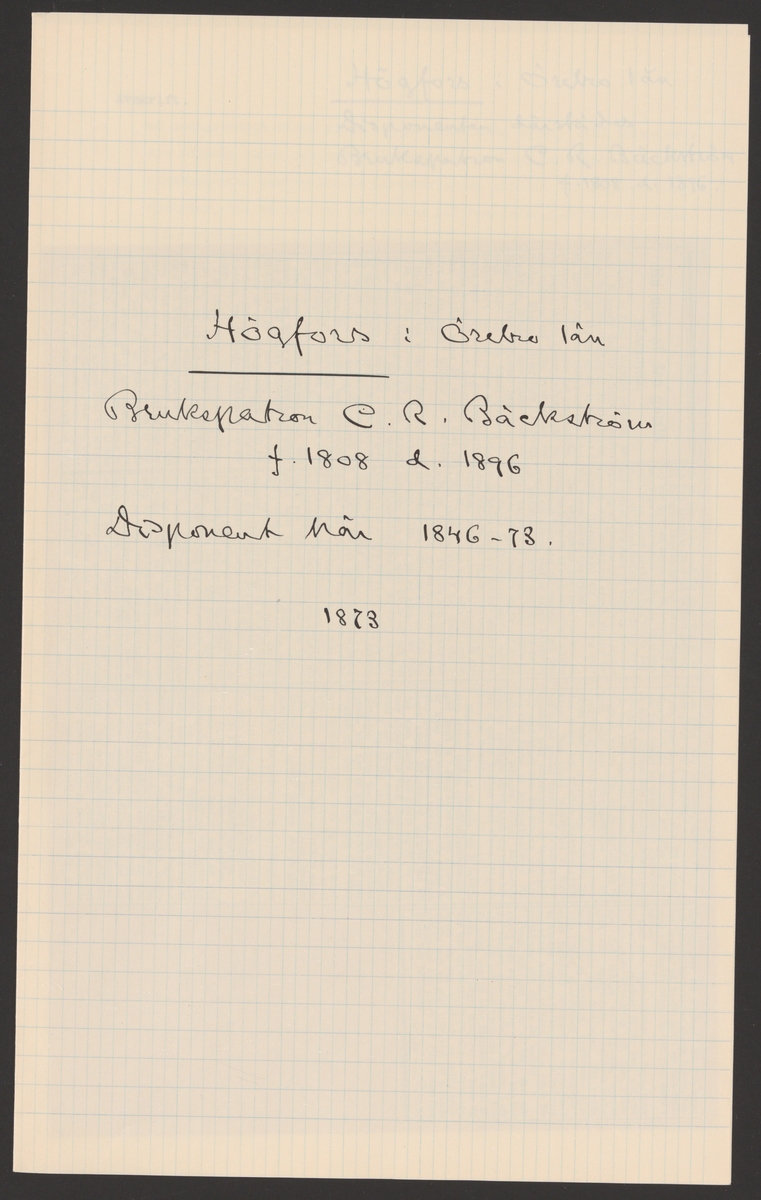 Högfors i Örebro län
Brukspatron C. R. Bäckström
f. 1808 d. 1896
Disponent här 1846-73.
1873